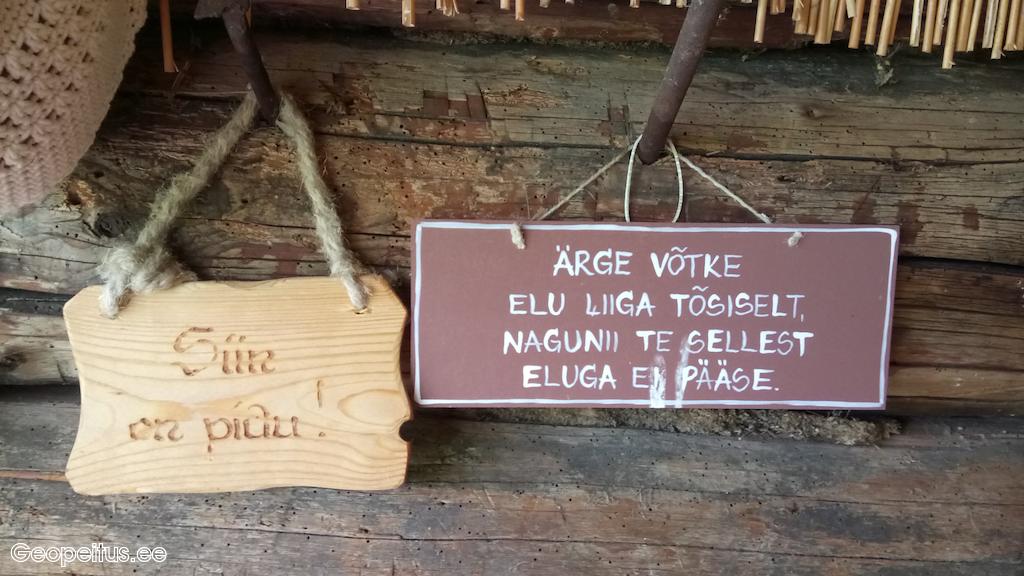 Siin
on pidu!
ÄRGE VÕTKE
ELU LIIGA TÕSISELT,
NAGUNII TE SELLEST
ELUGA EI PÄÄSE.
Geopeitus.ee